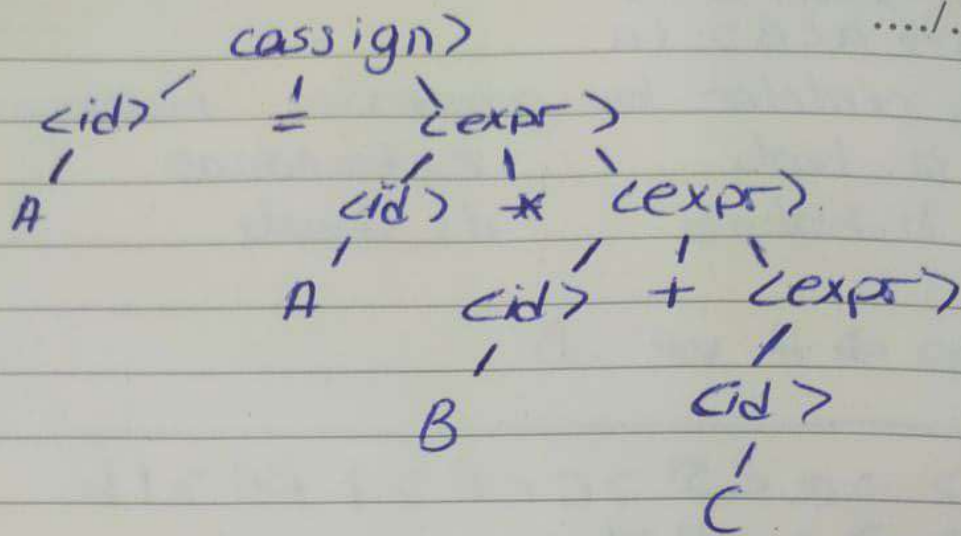 ..../.
<assign>
<id> = <expr>
A <id> * <expr>
A <id> + <expr>
B <id>
C